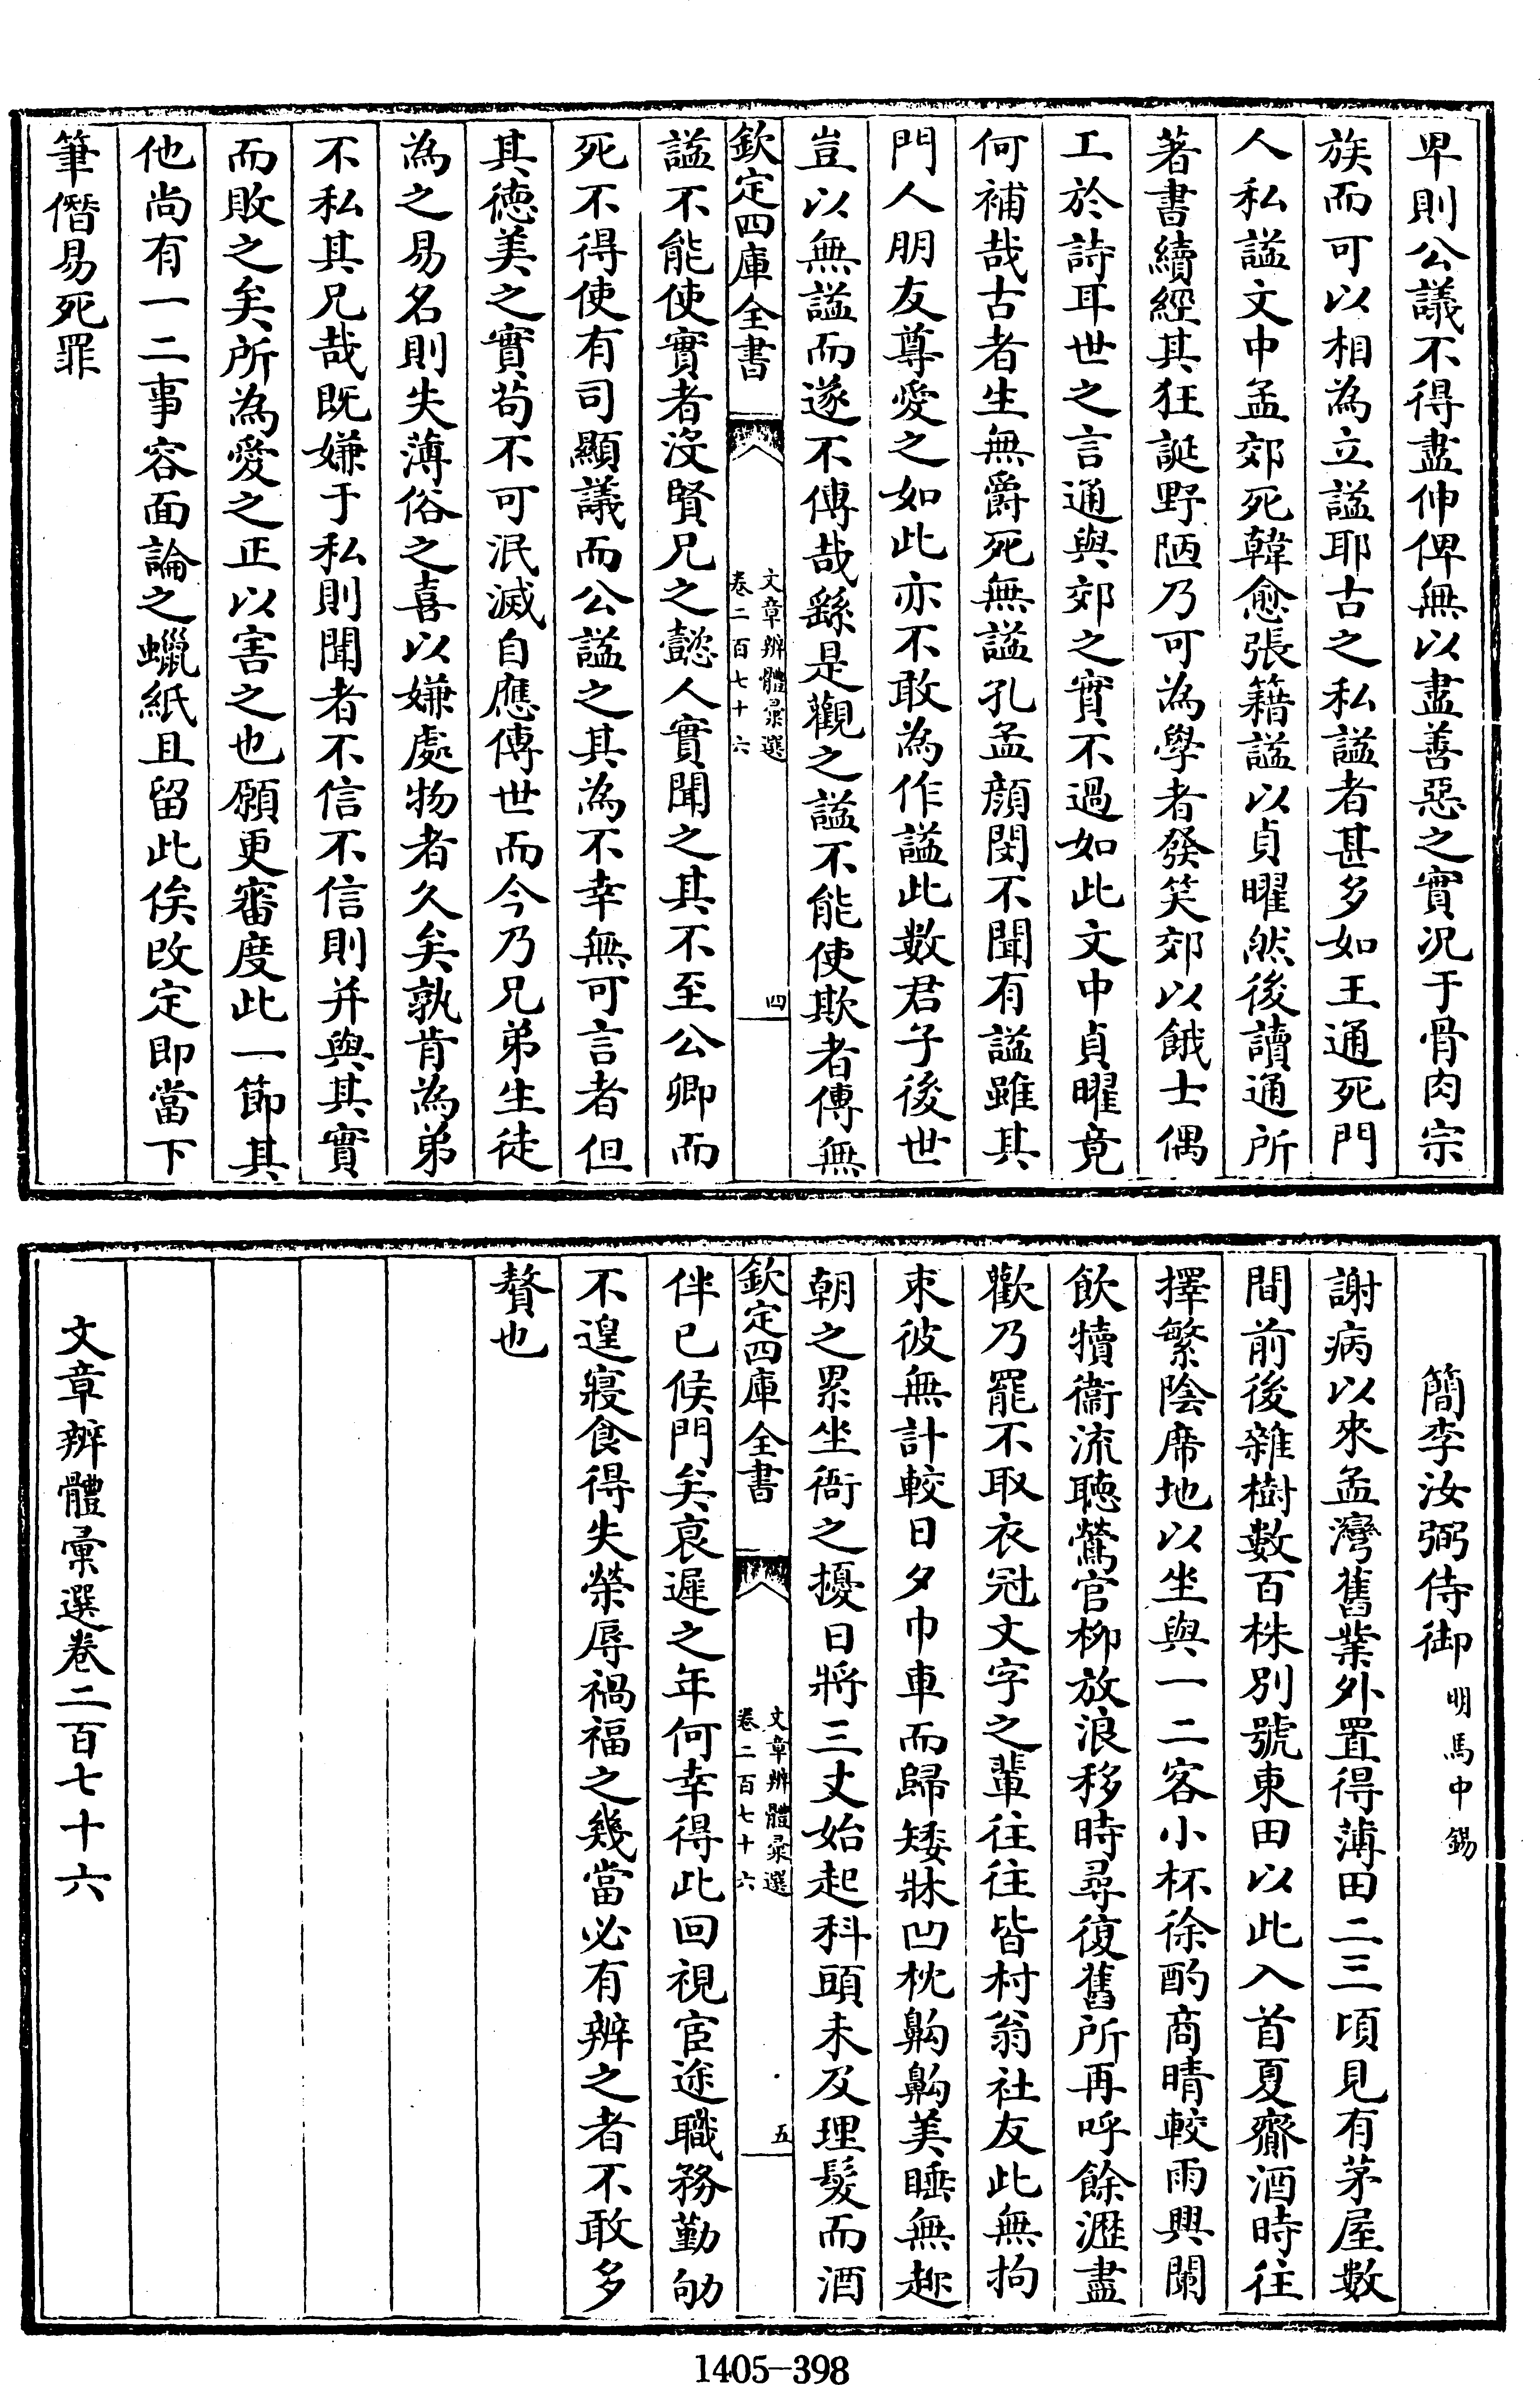 卑則公議不得盡伸俾無以盡善惡之實况于骨肉宗
族而可以相為立諡耶古之私諡者甚多如王通死門
人私諡文中孟郊死韓愈張籍諡以貞曜然後讀通所
著書續經其狂誕野陋乃可為學者發笑郊以餓士偶
工於詩耳世之言通與郊之實不過如此文中貞曜竟
何補哉古者生無爵死無諡孔孟顔閔不聞有諡雖其
門人朋友尊愛之如此亦不敢為作諡此數君子後世
豈以無諡而遂不傳哉繇是觀之諡不能使欺者傳無
欽定四庫全書
文章辨體彙選
卷二百七十六
四
諡不能使實者沒賢兄之懿人實聞之其不至公卿而
死不得使有司顯議而公諡之其為不幸無可言者但
其德美之實苟不可泯滅自應傳世而今乃兄弟生徒
為之易名則失薄俗之喜以嫌處物者久矣孰肯為弟
不私其兄哉既嫌于私則聞者不信不信則并與其實
而敗之矣所為愛之正以害之也願更審度此一節其
他尚有一二事容面論之蠟紙且留此俟改定即當下
筆僭易死罪
簡李汝弼侍御 明馬中錫
謝病以來孟灣舊業外置得薄田二三頃見有茅屋數
間前後雜樹數百株別號東田以此入首夏齋酒時往
擇繁陰席地以坐與一二客小杯徐酌商晴較雨興闌
飲犢衞流聴鶯官柳放浪移時尋復舊所再呼餘瀝盡
歡乃罷不取衣冠文字之輩往往皆村翁社友此無拘
束彼無計較日夕巾車而歸矮牀凹枕齁齁美睡無趣
朝之累坐衙之擾日將三丈始起科頭未及理髮而酒
欽定四庫全書
文章辨體彙選
卷二百七十六
五
伴已候門矣哀遲之年何幸得此回視宦途職務勤劬
不遑寢食得失榮辱禍福之幾當必有辨之者不敢多
贅也
文章辨體彙選卷二百七十六
1405-398